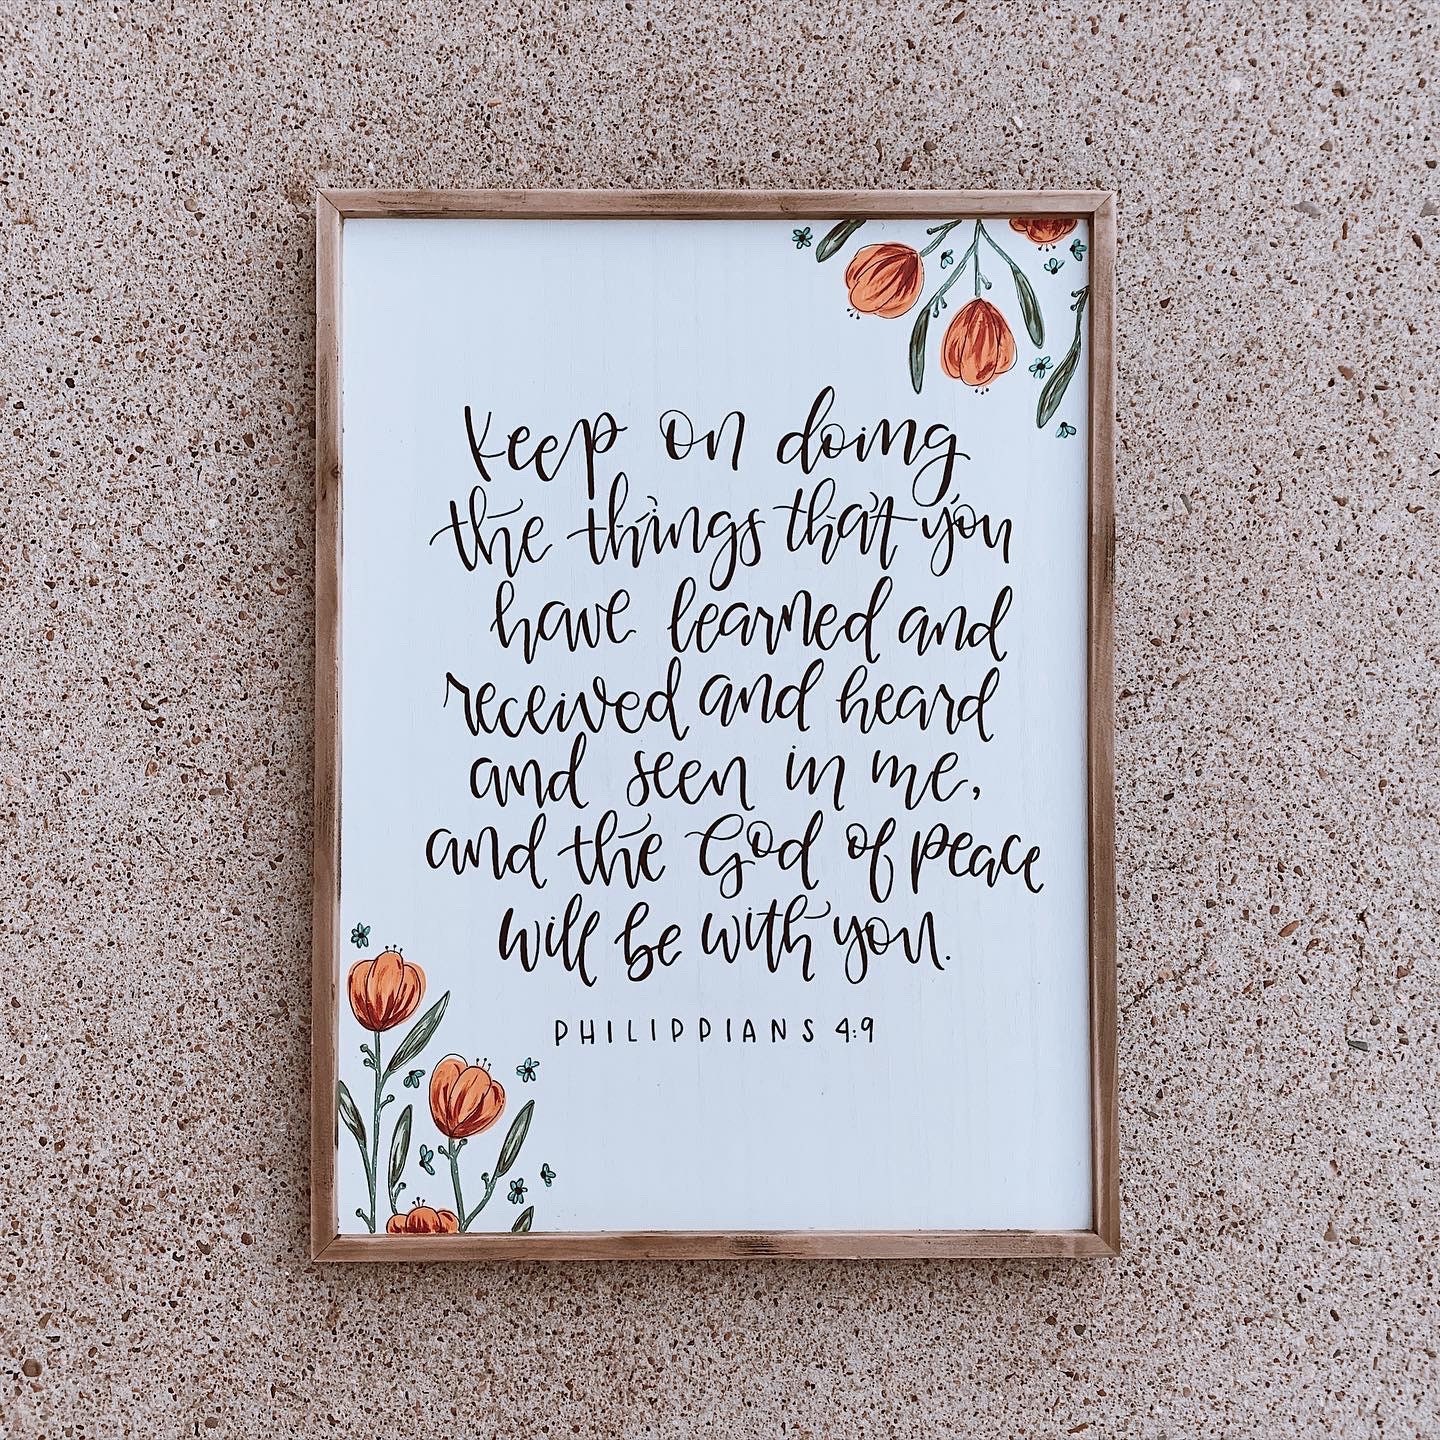 Keep on doing
the things that you
have learned and
received and heard
and seen in me,
and the God of peace
will be with you.
PHILIPPIANS 4:9